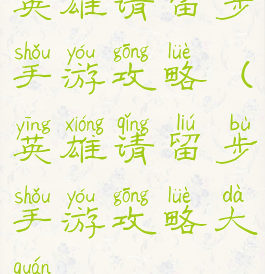 英雄请留步
shǒu yóu gōng lüè
手游攻略（
yīng xióng qǐng liú bù
英雄请留步
shǒu yóu gōng lüè dà
手游攻略大
quán